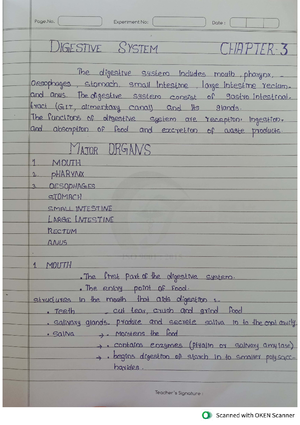 Page No.: Experiment No.: Date :
DIGESTIVE SYSTEM CHAPTER-3
The digestive system includes mouth, pharynx,
Oesophages, stomach, small intestine, large intestine rectum
and anus. The digestive system consist of gastro intestinal
tract (GIT, alimentary canal) and its glands.
The functions of digestive system are reception ingestion
and absorption of food and excretion of waste products.
MAJOR ORGANS
1 MOUTH
2 PHARYNX
3 OESOPHAGES
STOMACH
SMALL INTESTINE
LARGE INTESTINE
RECTUM
ANUS
1 MOUTH
• The first part of the digestive system.
• The entry point of food.
Structures in the mouth that aids digestion :-
• Teeth - cut tear, crush and grind food
• salivary glands produce and secrete saliva in to the oral cavity
• Saliva → • moistens the food
→ • contains enzymes (Ptyalin or salivary amylase)
→ • begins digestion of starch in to smaller polysac-
harides.
Teacher's Signature :
Scanned with OKEN Scanner